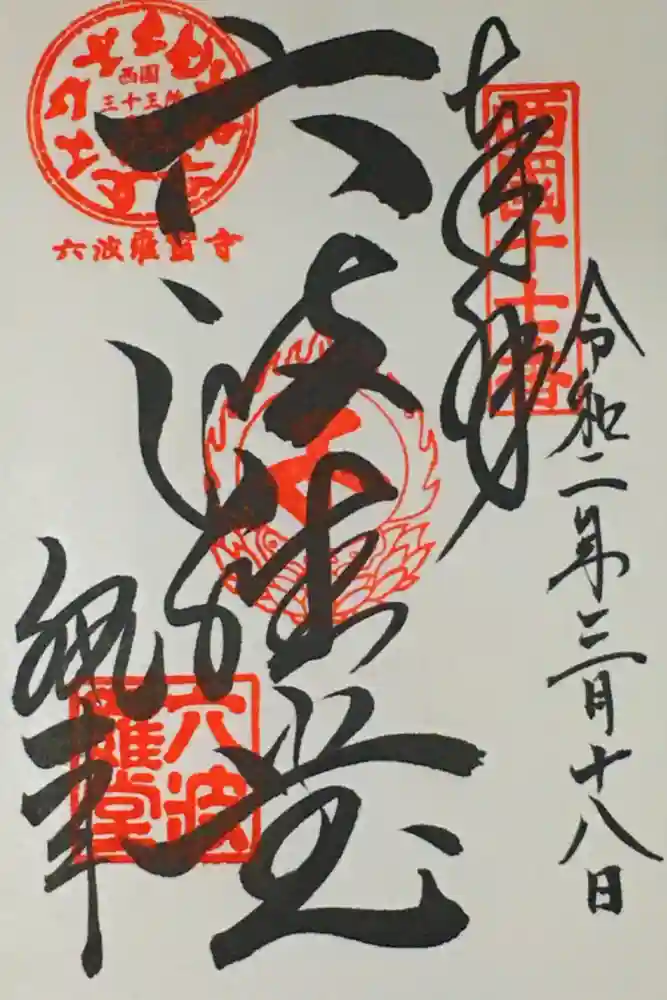 令和二年三月十八日
奉拝
西國十七番
六波羅堂
西国
三十三所
六波羅蜜寺
六波
羅堂